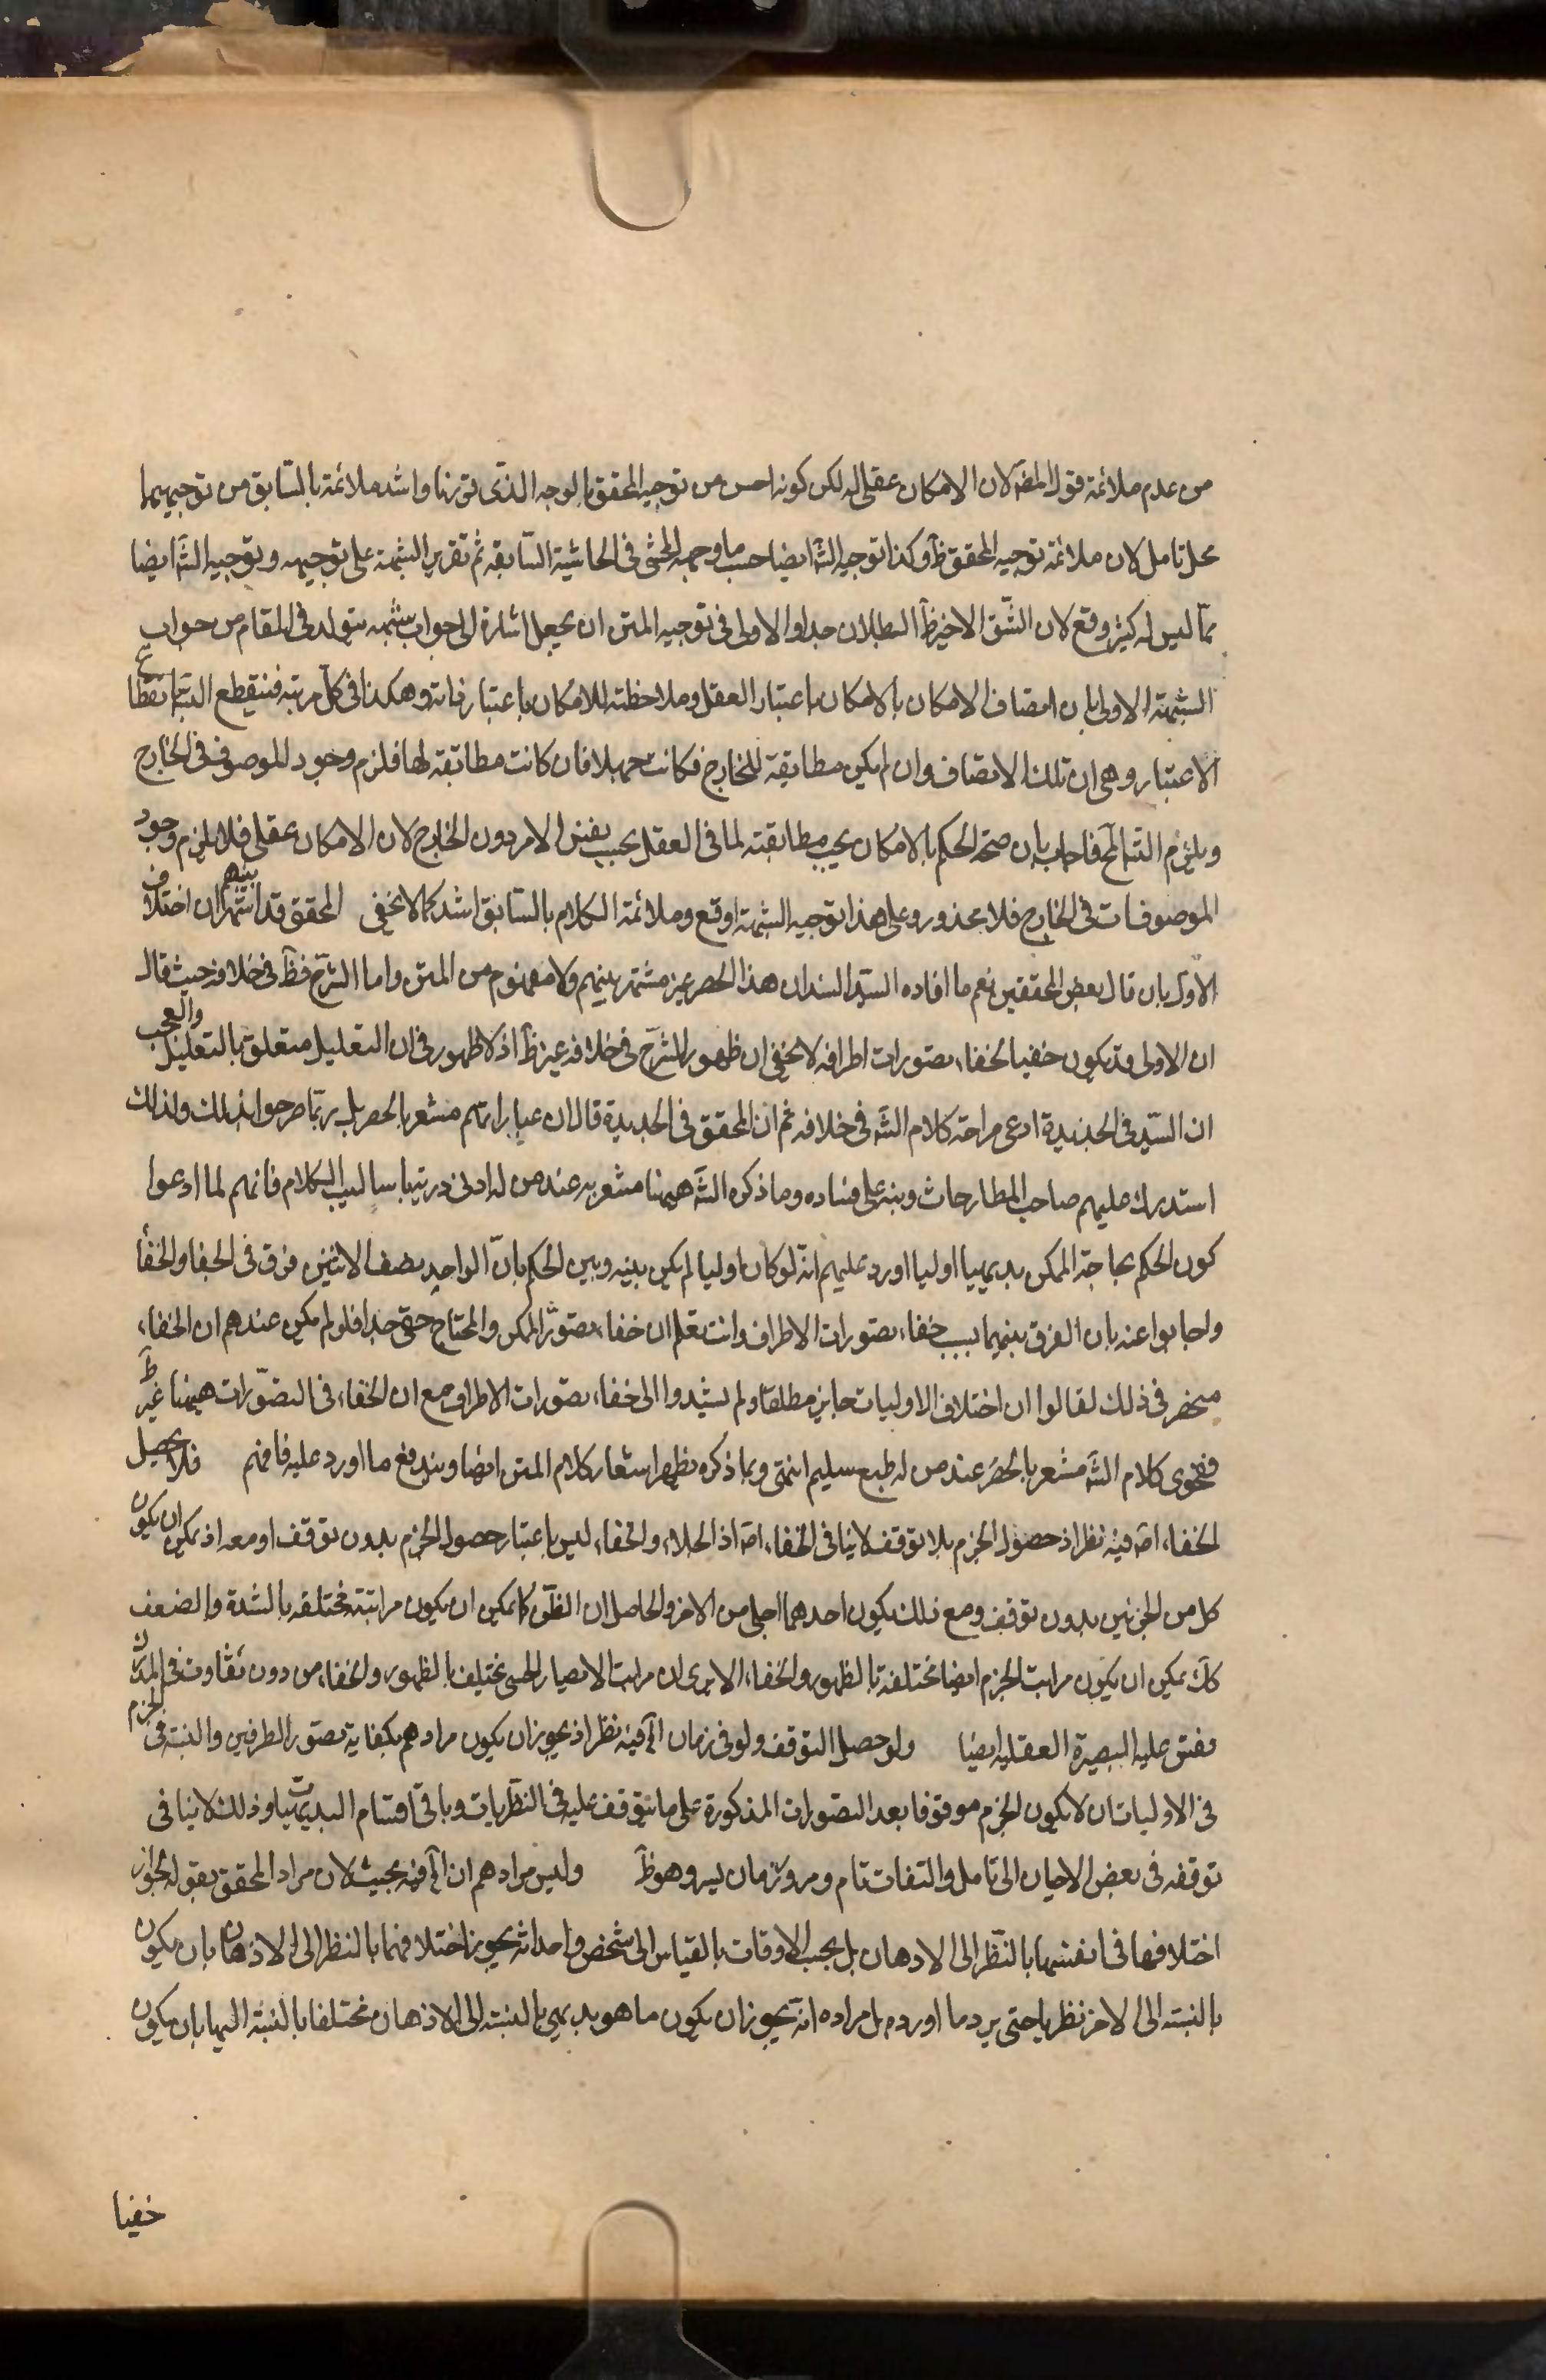 من عدم ملائمة قول المصۤ لان الامكان عقلى اله لكن كونه احسن من توجيه المحقق بالوجه الذى قررنا واشد ملائمة بالسّابق من توجيههما
محل تامل لان ملائمة توجيه المحقق ظۤ وكذا توجيه الشۤ ايضا حسب ما وجهه المحشى فى الحاشية السّابقة ثم تقرير الشبهة على توجيهه وتوجيه الشۤ ايضا
ممّا ليس له كثير وقع لان الشّق الاخير ظۤ البطلان جدا والاولى فى توجيه المتن ان يجعل اشارة الى جواب شبهه يتولد فى المقام من جواب
الشبهة الاولى بان اتصاف الامكان بالامكان باعتبار العقل وملاحظته للامكان باعتبار ذاته وهكذا فى كل مرتبه فينقطع التسۤ بانقطاع
الاعتبار وهى ان تلك الاتصاف وان لم يكن مطابقة للخارج فكانت جهلا فان كانت مطابقة لها فلزم وجود الموصوف فى الخارج
ويلزم التسۤ المحۤ فاجاب بان صحة الحكم بالامكان يجب مطابقته لما فى العقل بحسب نفس الامر دون الخارج لان الامكان عقلى فلا يلزم وجود
الموصوفات فى الخارج فلا محذور وعلى هذا توجيه الشبهة اوقع وملائمة الكلام بالسّابق اشد كما لا يخفى المحقق قد اشتهر بينهم ان اختلاف
الاوۤ بان قال بعض المحققين نعم ما افاده السيّد السند ان هذا الحصر غير مشتهر بينهم ولا مفهوم من المتن واما الشرۤح فظۤ فى خلافه حيث قال
ان الاولى قد يكون خفيا لخفاء تصورات اطرافه لا يخفى ان ظهور الشرۤح فى خلافه غير ظۤ اذ لا ظهور فى ان التعليل متعلق بالتقليل والعجب
ان السّيد فى الجديدة ادعى صراحة كلام الشۤ فى خلافه ثم ان المحقق فى الجديدة قال ان عباراتهم مشعر بالحصر بل ربّما صرحوا بذلك ولذلك
استدرك عليهم صاحب المطارحات ونبه على فساده وما ذكره الشۤ ههنا مشعر به عند من له ادنى دربة باساليب الكلام فانهم لما ادعوا
كون الحكم بحاجة الممكن بديهيا اوليا اورد عليهم انه لو كان اوليا لم يكن بينه وبين الحكم بانّ الواحد نصف الاثنين فرق فى الجلاء والخفاء
واجابوا عنه بان الفرق بينهما بسبب خفاء تصورات الاطراف وانت تعلم ان خفاء تصوّر الممكن والمحتاج حقى جدا فلو لم يكن عندهم ان الخفاء
منحصر فى ذلك لقالوا ان اختلاف الاوليات جايز مطلقا ولم يشيدوا الى خفاء تصورات الاطراف مع ان الخفاء فى التصوّرات ههنا غير ظۤ
وفحوى كلام الشۤ مشعر بالحصر عند من له طبع سليم انتهى وبما ذكره يظهر اشعار كلام المتن ايضا ويندفع ما اورد عليه فافهم فلا يحصل
الخفاء اصۤ فيه نظر اذ حصول الجزم بلا توقف لا ينافى الخفاء اصۤ اذ الجلاء والخفاء ليس باعتبار حصول الجزم بدون توقف او معه اذ يمكن ان يكون
كل من الجزئين بدون توقف ومع ذلك يكون احدهما اجلى من الاخر والحاصل ان الظنّ كما يمكن ان يكون مراتبته مختلفه بالشدة والضعف
كلۤ يمكن ان يكون مراتب الجزم ايضا مختلفة بالظهور والخفاء الا يرى ان مراتب الابصار الحسى تختلف بالظهور والخفاء من دون تفاوت فى المدرك
فقس عليه البصيرة العقليه ايضا ولو حصل التوقف ولو فى زمان الخۤ فيه نظر اذ يجوز ان يكون مرادهم بكفاية تصور الطرفين والنسبة فى الجزم
فى الاوليات ان لا يكون الجزم موقوفا بعد التصورات المذكورة على ما يتوقف عليه فى النظريات وباقى اقسام البديهيات وذلك لا ينافى
توقفه فى بعض الاحيان الى تامل والتفات تام ومرور زمان يسير وهو ظۤ وليس مرادهم ان الخۤ فيه بحيث لان مراد المحقق بقوله لجواز
اختلافها فى انفسها بالنظر الى الاذهان بل بحسب الاوقات بالقياس الى شخص واحد انه يجوز اختلافهما بالنظر الى الاذهان بان يكون
بالنسبة الى الاخر نظريا حتى يرد ما اورده بل مراده انه يجوز ان يكون ما هو بديهى بالنسبة الى الاذهان مختلفا بالنسبة اليها بان يكون
خفيا